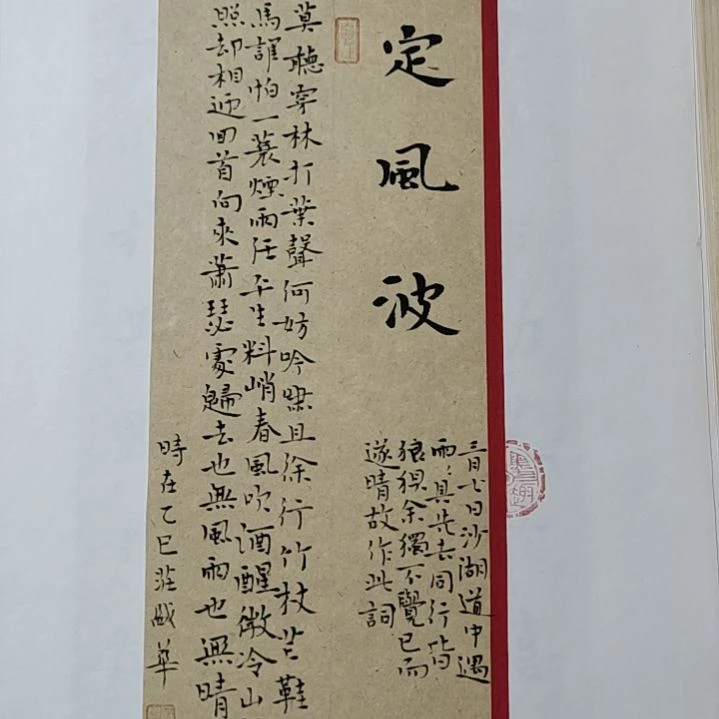 定風波
三月七日沙湖道中遇
雨雨具先去同行皆
狼狽余獨不覺已而
遂晴故作此詞
莫聽穿林打葉聲何妨吟嘯且徐行竹杖芒鞋
馬誰怕一蓑煙雨任平生料峭春風吹酒醒微冷山
照却相迎回首向來蕭瑟處歸去也無風雨也無晴
時在乙巳莊成華